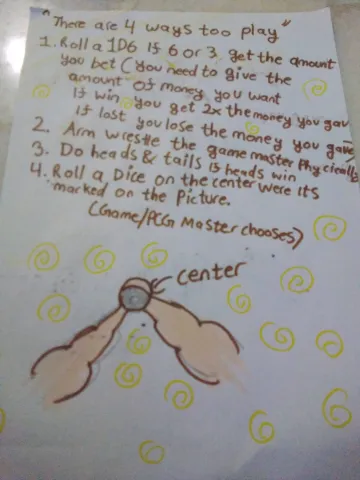 "There are 4 ways too play"
1. Roll a 1D6 If 6 or 3, get the amount
you bet (You need to give the
amount of money you want
If win you get 2x the money you gav
if lost you lose the money you gave)
2. Arm wrestle the game master Phycically
3. Do heads & tails If heads win
4. Roll a Dice on the center were its
marked on the Picture.
(Game/PCG Master chooses)
center